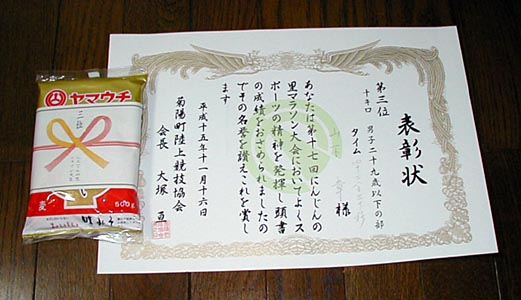 表彰状
第三位
十キロ 男子二十九歳以下の部
タイム
様
あなたは第十七回にんじんの
里マラソン大会においてよくス
ポーツの精神を発揮し頭書
の成績をおさめられましたの
でその名誉を讃えこれを賞し
ます
平成十五年十一月十六日
菊陽町陸上競技協会
会長 大塚
ヤマウチ
三位
麦
500g